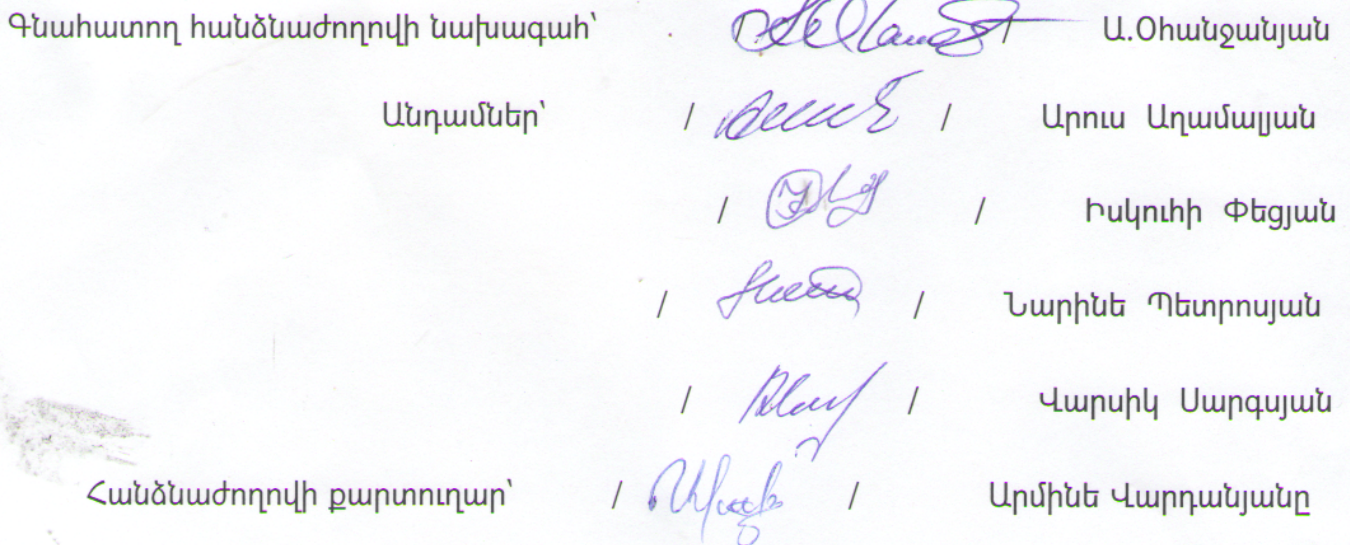 Գնահատող հանձնաժողովի նախագահ՝ / / Ա.Օհանջանյան
Անդամներ՝ / / Արուս Աղամալյան
/ / Իսկուհի Փեցյան
/ / Նարինե Պետրոսյան
/ / Վարսիկ Սարգսյան
Հանձնաժողովի քարտուղար՝ / / Արմինե Վարդանյանը